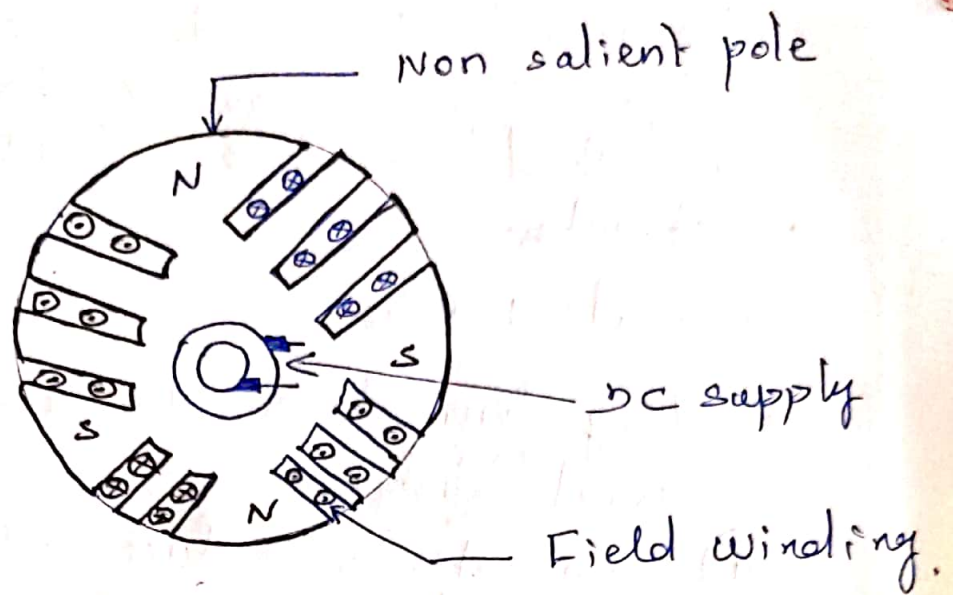 Non salient pole
N
S
DC supply
S
N
Field winding.